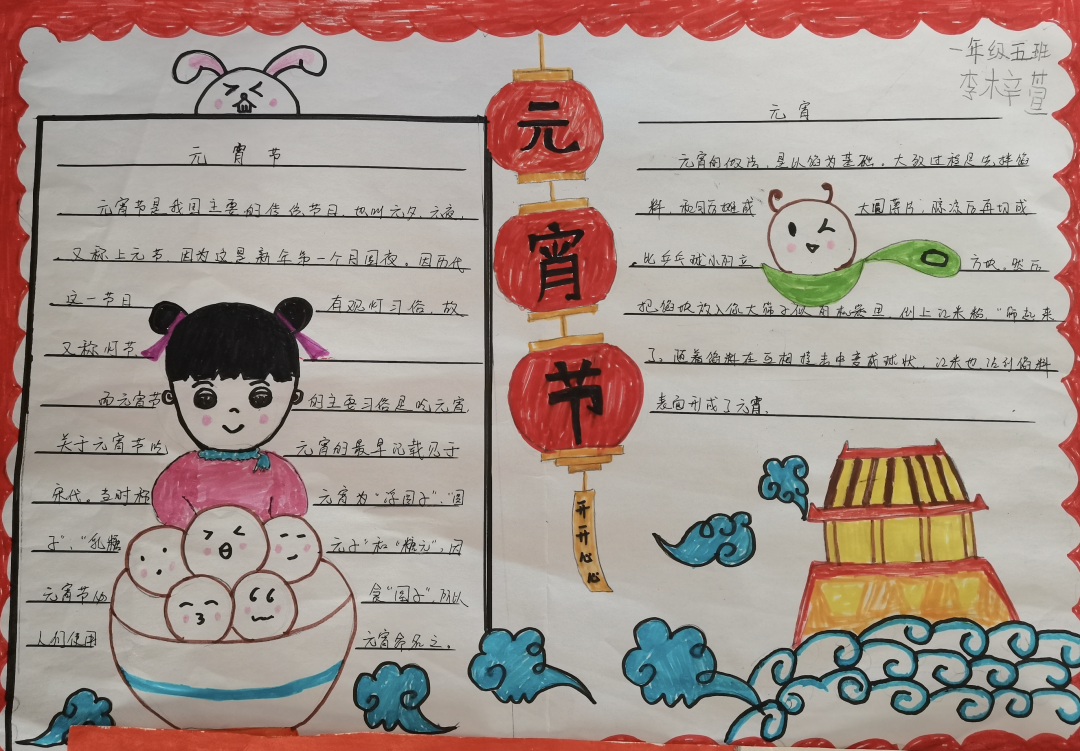 一年级五班
李梓萱
元宵节
元宵节是我国主要的传统节日,也叫元夕、元夜,
又称上元节,因为这是新年第一个月圆夜。因历代
这一节日 有观灯习俗,故
又称灯节。
而元宵节 的主要习俗是吃元宵,
关于元宵节吃 元宵的最早记载见于
宋代。当时称 元宵为“浮圆子”、“圆
子”、“乳糖 元子”和“糖元”,因
元宵节必 食“圆子”,所以
人们使用 元宵命名之。
元宵节
开开心心
元宵
元宵的做法,是以馅为基础。大致过程是先拌馅
料,和匀后摊成 大圆薄片,晾凉后再切成
比乒乓球小的立 方块。然后
把馅块放入像大筛子似的机器里,倒上江米粉,“筛”起来
了。随着馅料在互相撞击中变成球状,江米也沾到馅料
表面形成了元宵。